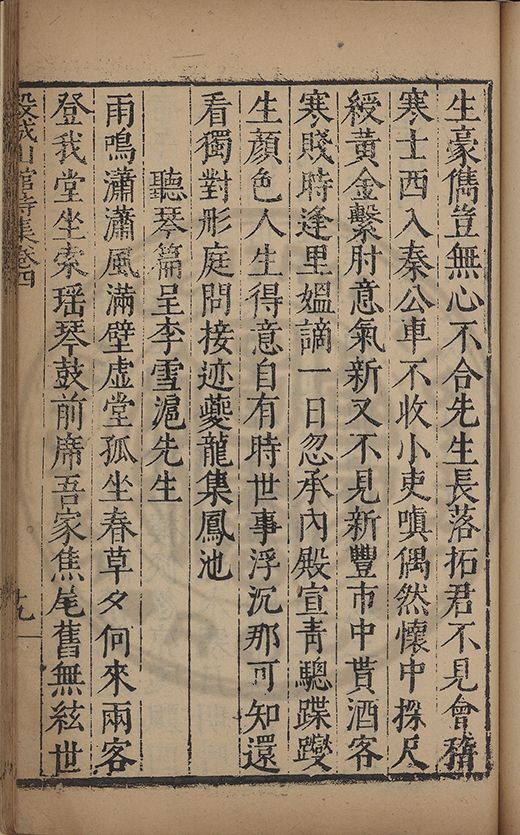 生豪儁豈無心不合先生長落拓君不見會稽
寒士西入秦公車不收小吏嗔偶然懷中探尺
綬黃金繫肘意氣新又不見新豐市中貰酒客
寒賤時逢里媼謫一日忽承內殿宣靑驄蹀躞
生顏色人生得意自有時世事浮沉那可知還
看獨對彤庭問接迹夔龍集鳳池
聽琴篇呈李雪滬先生
雨鳴瀟瀟風滿壁虛堂孤坐春草夕何來兩客
登我堂坐索瑶琴鼓前席吾家焦尾舊無絃世
穀城山館詩集卷四
十九